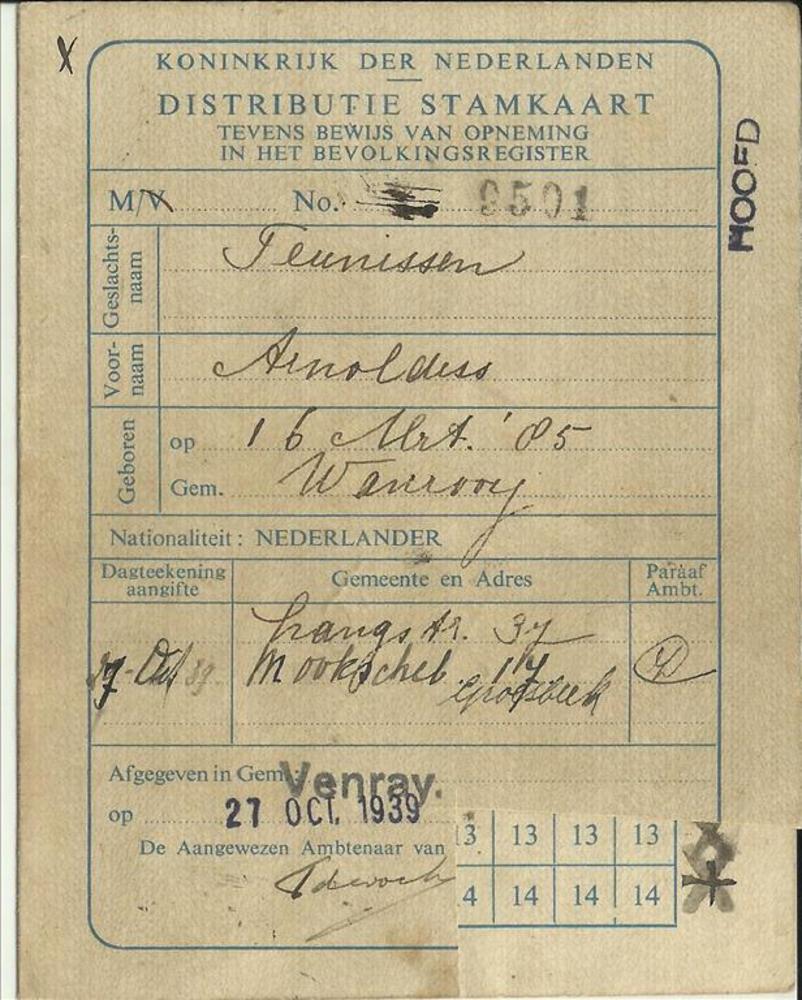 X
KONINKRIJK DER NEDERLANDEN
DISTRIBUTIE STAMKAART
TEVENS BEWIJS VAN OPNEMING
IN HET BEVOLKINGSREGISTER
HOOFD
M/V No. 9501
Geslachtsnaam Teunissen
Voornaam Arnoldus
Geboren op 16 Mrt. '85
Gem. Wanrooy
Nationaliteit: NEDERLANDER
Dagteekening aangifte Gemeente en Adres Paraaf Ambt.
Langstr. 37
Mookscheb. 17
Groesbeek
Afgegeven in Gem.: Venray.
op 27 OCT. 1939
De Aangewezen Ambtenaar van
13 13 13 13
14 14 14 14